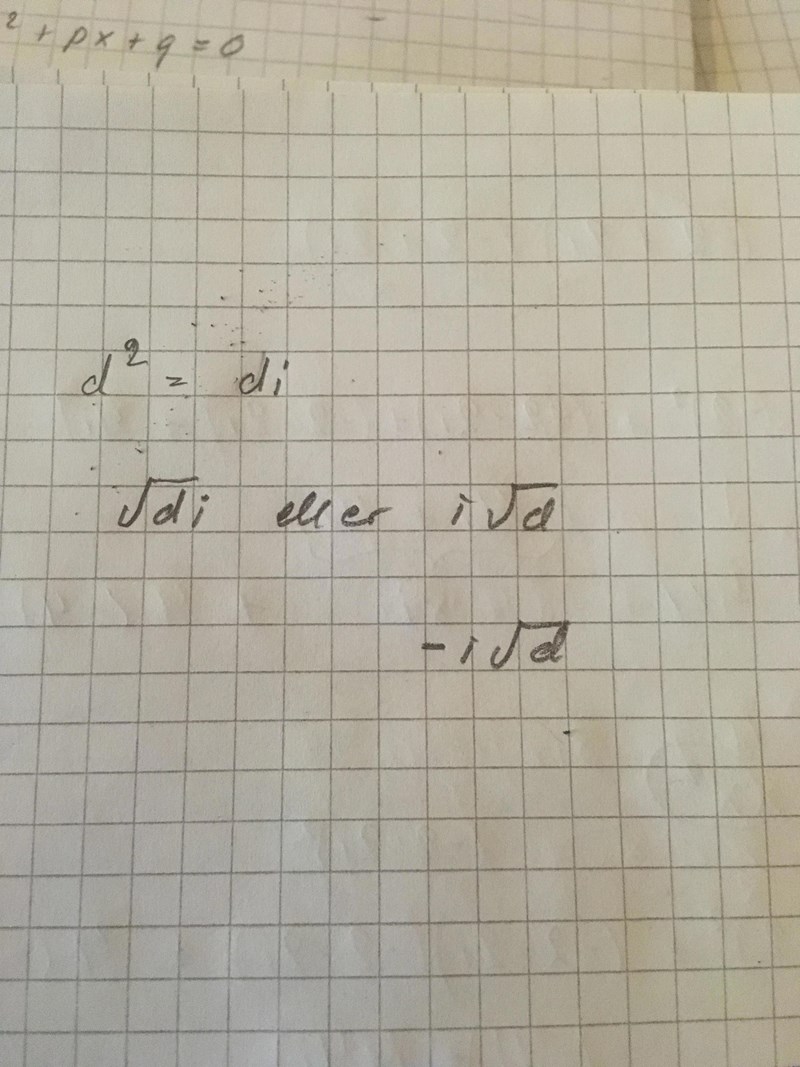 ² + px + q = 0
d² = di
√di eller i√d
-i√d